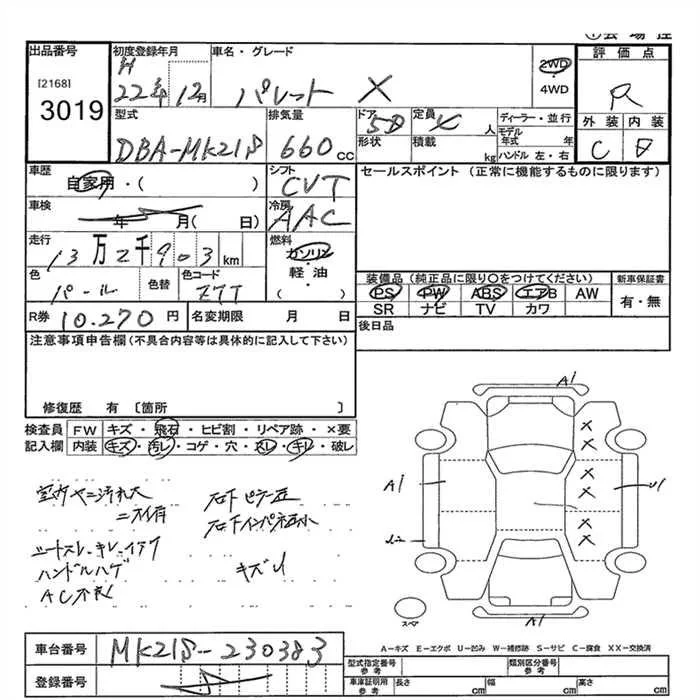 出品番号
[2168]
3019
初度登録年月
H
22年12月
車名・グレード
パレット X
2WD
・
4WD
評価点
R
外装 内装
C D
型式
DBA-MK21S
排気量
660 cc
ドア 5D
形状
定員 人
積載 kg
ディーラー・並行
モデル年式 年
ハンドル 左・右
車歴
自家用・( )
車検
年 月( 日)
シフト
CVT
冷房
AAC
セールスポイント (正常に機能するものに限ります)
走行
13万2千903km
燃料
ガソリン
軽油
・( )
色
パール
色替
色コード
Z7T
装備品 (純正品に限り○をつけてください)
PS PW ABS エアB AW
SR ナビ TV カワ
新車保証書
有・無
R券 10.270円
名変期限 月 日
後日品
注意事項申告欄(不具合内容等は具体的に記入して下さい)
修復歴 有 〔箇所 〕
検査員 FW キズ・飛石・ヒビ割・リペア跡・×要
記入欄 内装 キズ・汚レ・コゲ・穴・スレ・キレ・破レ
室内ヤニ汚れ大
ニオイ有
シートスレ・キレ・
ハンドルハゲ
AC不良
右下
右下インパネ
キズ
A1
A1
U1
A1
スペア
A-キズ E-エクボ U-凹み W-補修跡 S-サビ C-腐食 XX-交換済
車台番号
MK21S-230383
登録番号
型式指定番号
参考
類別区分番号
参考
車庫証明用
参考
長さ cm
幅 cm
高さ cm